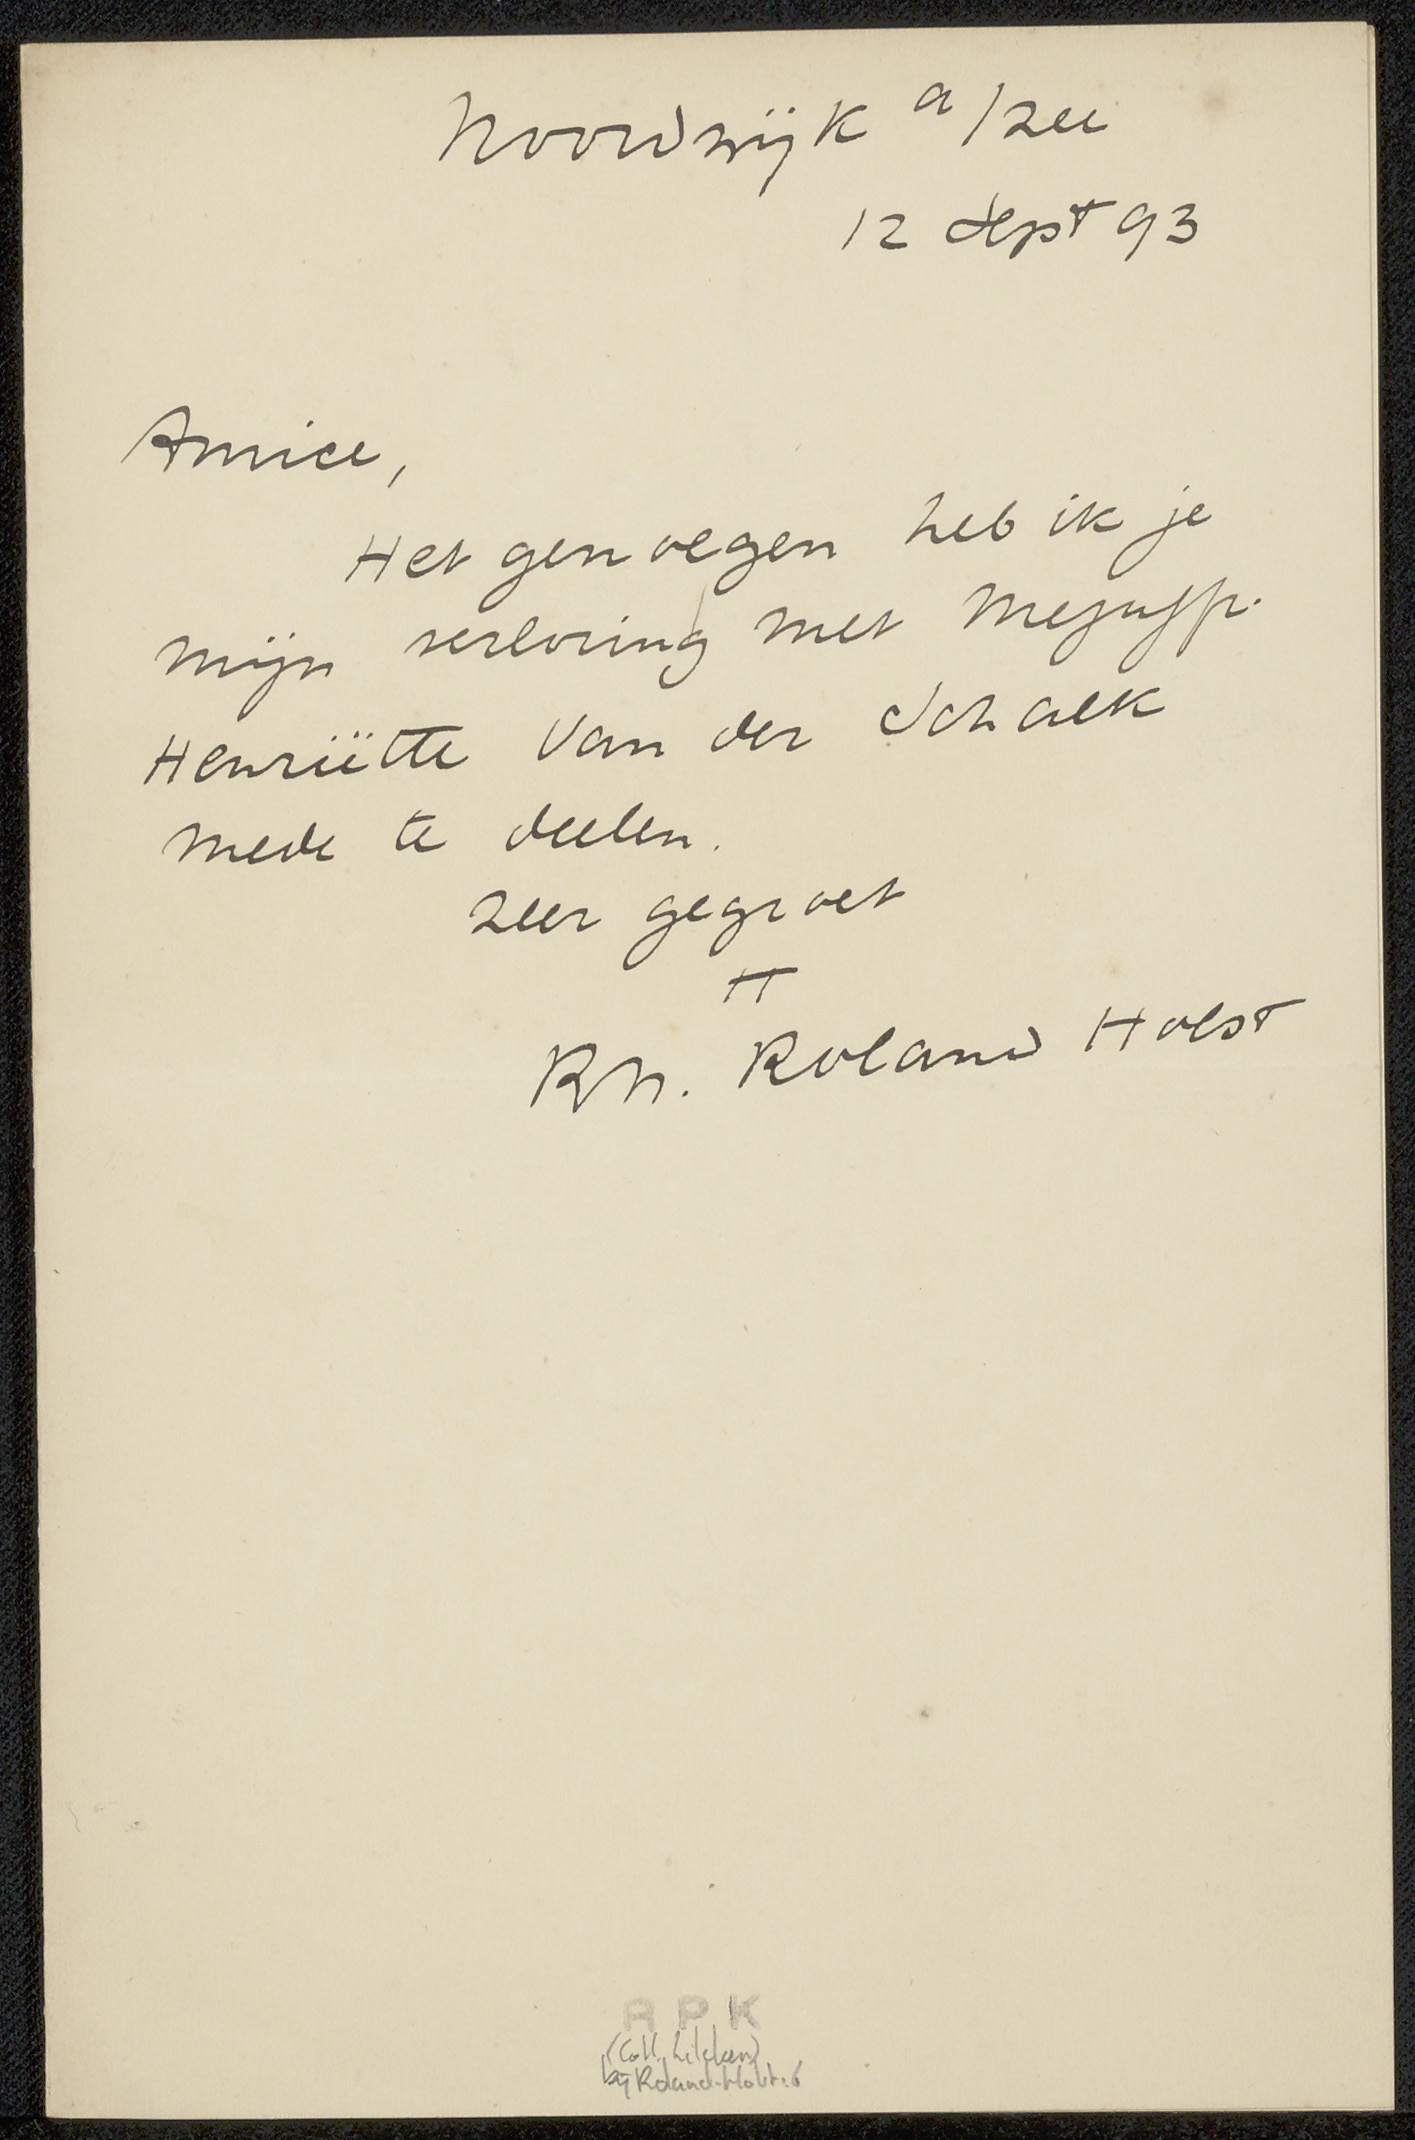 Noordwijk a/zee
12 Sept 93
Amice,
Het genoegen heb ik je
mijn verloving met Mejuffr.
Henriëtte van der Schalk
mede te deelen.
zeer gegroet
tt
RN. Roland Holst
RPK
(Coll. Zilcken)
bij Roland-Holst